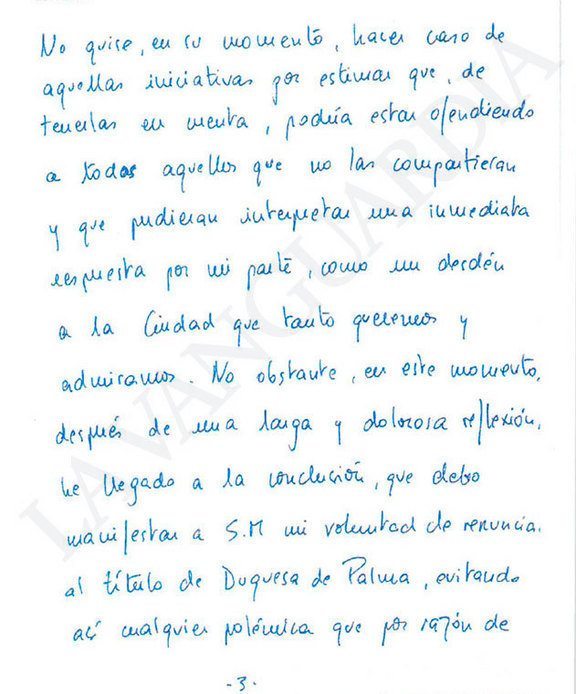 No quise, en su momento, hacer caso de
aquellas iniciativas por estimar que, de
tenerlas en cuenta, podría estar ofendiendo
a todos aquellos que no las compartieran
y que pudieran interpretar una inmediata
respuesta por mi parte, como un desdén
a la Ciudad que tanto queremos y
admiramos. No obstante, en este momento,
después de una larga y dolorosa reflexión,
he llegado a la conclusión, que debo
manifestar a S.M mi voluntad de renuncia.
al título de Duquesa de Palma, evitando
así cualquier polémica que por razón de
-3.
LA VANGUARDIA